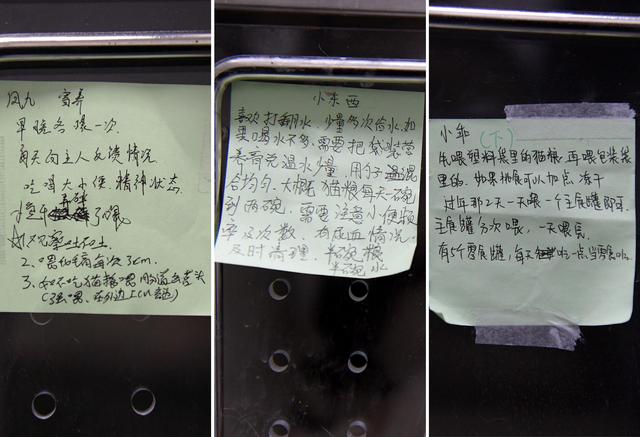 凤九 寄养
早晚各猍一次
每天向主人反馈情况
吃喝大小便,精神状态
了喂
2、喂化毛膏每次3cm.
3、如不吃猫粮喂肠道处方
小东西
喜欢打翻水,少量多次给水,如
果喝水不多,需要把袋装营
养膏兑温水少量,用勺子
合均匀,大概猫粮每天一碗
到两碗,需要注意小便频
率及次数,有尿血情况
及时清理. 半碗粮
半碗水
小年 (下)
先喂塑料袋里的猫粮,再喂包装袋
里的.如果挑食可以加点冻干
过年那2天一天喂一个主食罐即可.
主食罐分次喂,一天喂完
有6个零食罐,每天吃一点,当零食吃.